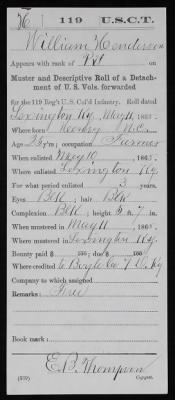 H | 119 | U.S.C.T.
William Henderson
Appears with rank of Pvt on
Muster and Descriptive Roll of a Detach-
ment of U. S. Vols. forwarded
for the 119 Reg't U. S. Col'd Infantry. Roll dated
Lexington Ky, May 11, 1865.
Where born N.C.
Age 35 y'rs; occupation Farmer
When enlisted May 10, 1865.
Where enlisted Lexington Ky.
For what period enlisted 3 years.
Eyes Blk; hair Blk
Complexion Blk; height 5 ft. 7 in.
When mustered in May 11, 1865.
Where mustered in Lexington Ky.
Bounty paid $ 100; due $ 100
Where credited to Boyle Co 7 Dis. Ky
Company to which assigned
Remarks: Free
Book mark:
E. B. Thompson
(339) Copyist.